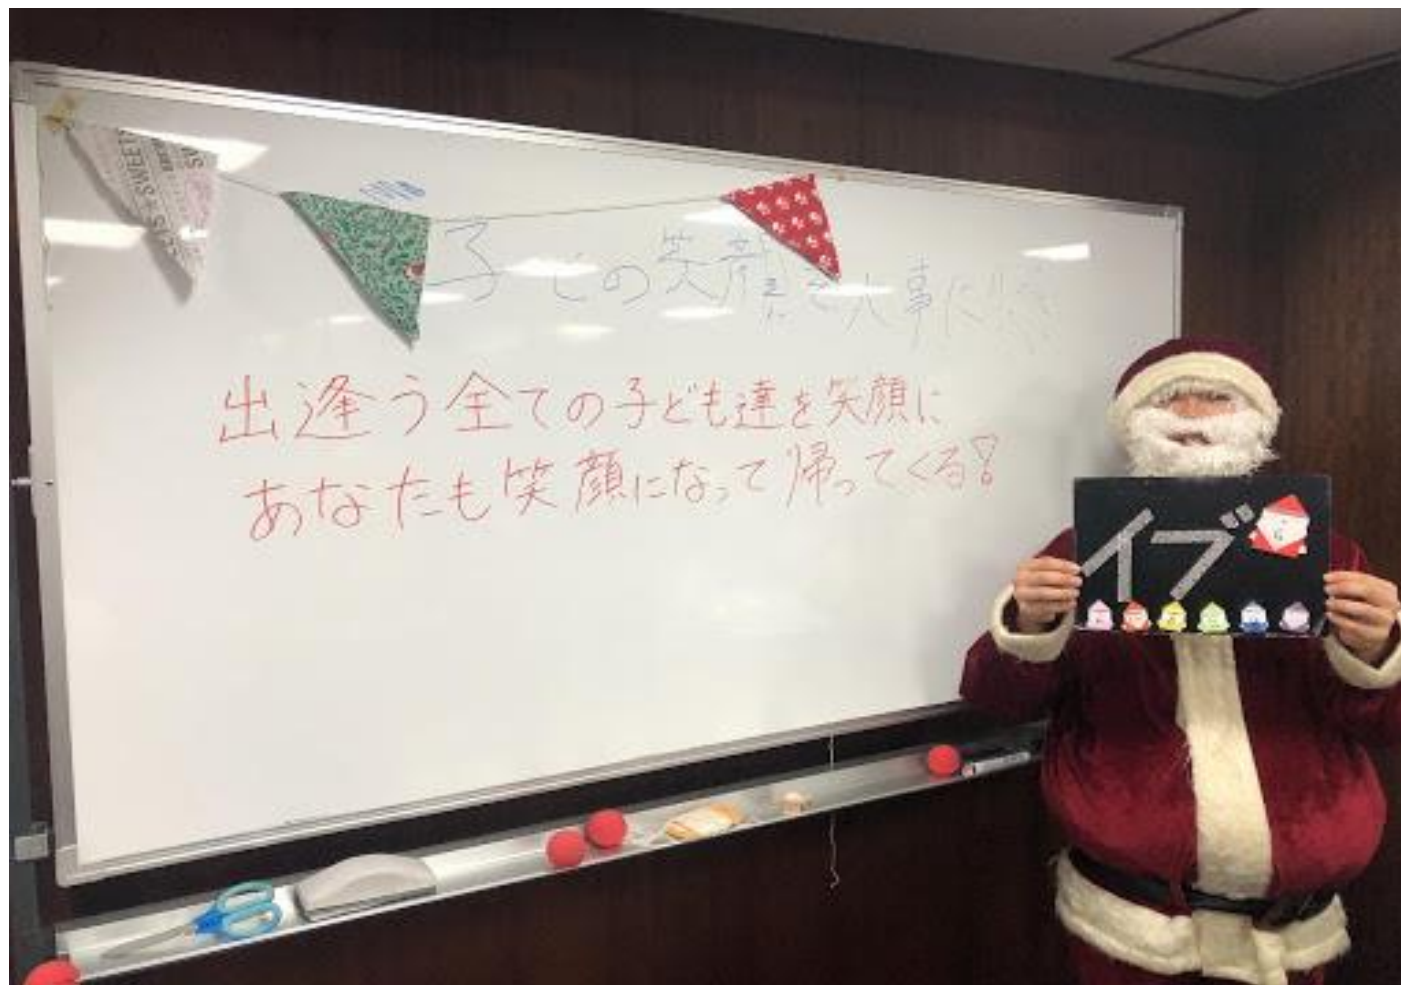 SWEET
子どの笑顔を大事に
出逢う全ての子ども達を笑顔に
あなたも笑顔になって帰ってくる!
イブ